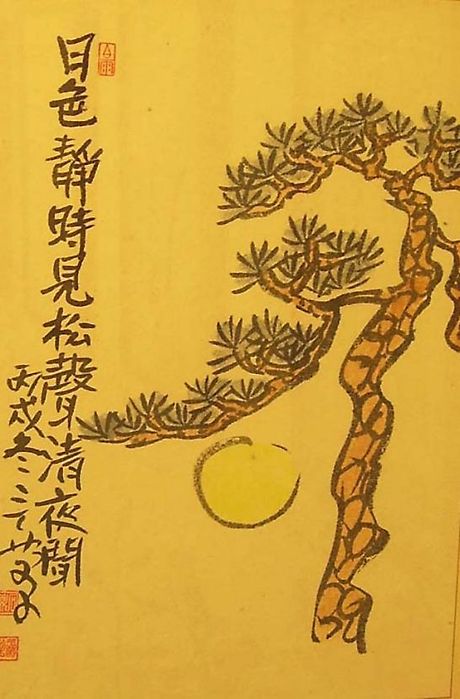 月色靜時見松聲清夜聞
丙戌冬